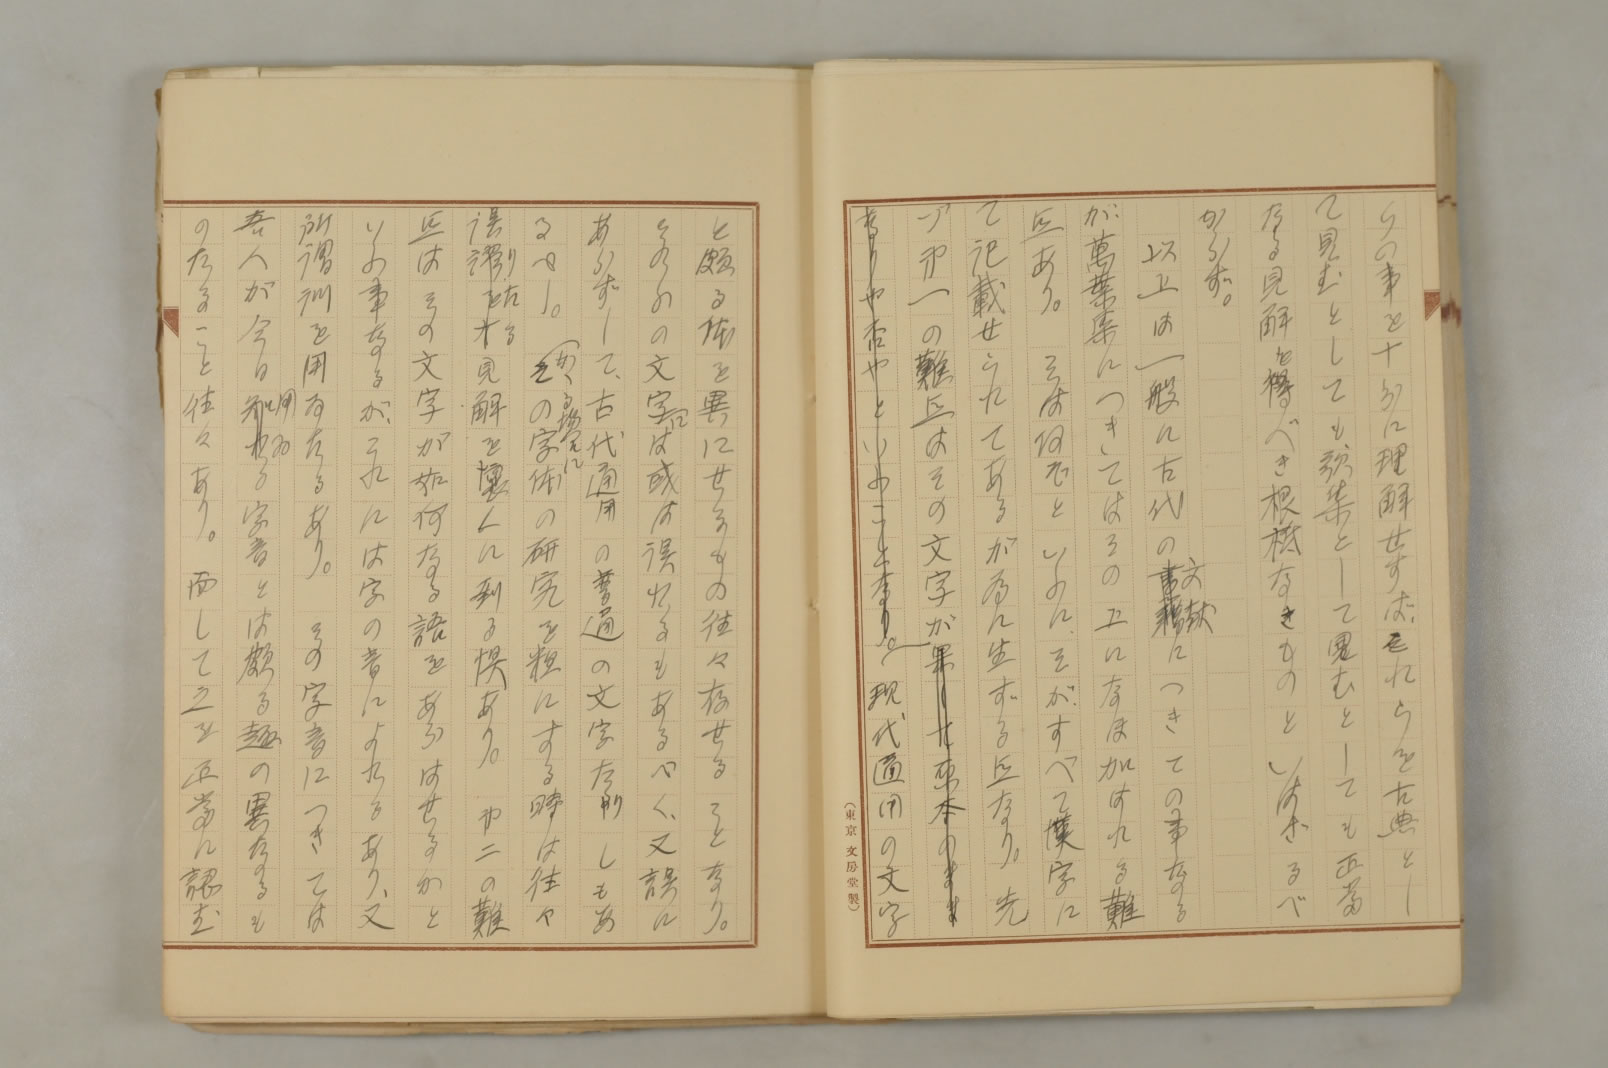 りの事を十分に理解せずばそれらを古典とし
て見むとしても歌集として見むとしても正当
なる見解を得べき根柢なきものといはざるべ
からず。
以上は一般に古代の文献につきての事なる
が萬葉集につきてはその上になほ加はれる難
点あり。そは何ぞといふに、そがすべて漢字に
て記載せられてあるが為に生ずる点なり。先
づ第一の難点はその文字が果して原本のまま
なりや否やといふことなり。現代通用の文字
(東京 文房堂製)
と頗る体を異にせるもの往々存せることなり。
それらの文字には或は誤れるもあるべく、又誤に
あらずして、古代通用の普通の文字なりしもあ
るべし。かゝる場合にその字体の研究を粗にする時は往々
誤謬に陥りたる見解を懐くに到る惧あり。第二の難
点はその文字が如何なる語をあらはせるかと
いふ事なるが、それには字の音によれるあり、又
所謂訓を用ゐたるあり。その字音につきては
吾人が今日用ゐる字音とは頗る趣の異なるも
のたること往々あり。而して之を正当に認む